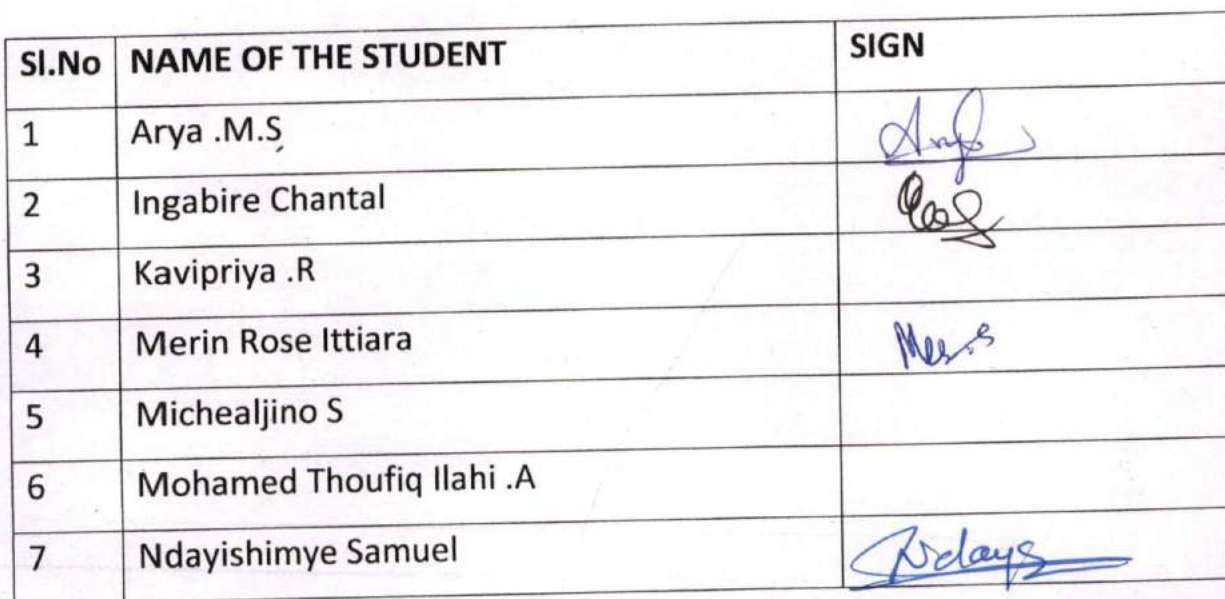 Sl.No NAME OF THE STUDENT SIGN
1 Arya .M.S
2 Ingabire Chantal
3 Kavipriya .R
4 Merin Rose Ittiara
5 Michealjino S
6 Mohamed Thoufiq Ilahi .A
7 Ndayishimye Samuel Ndays